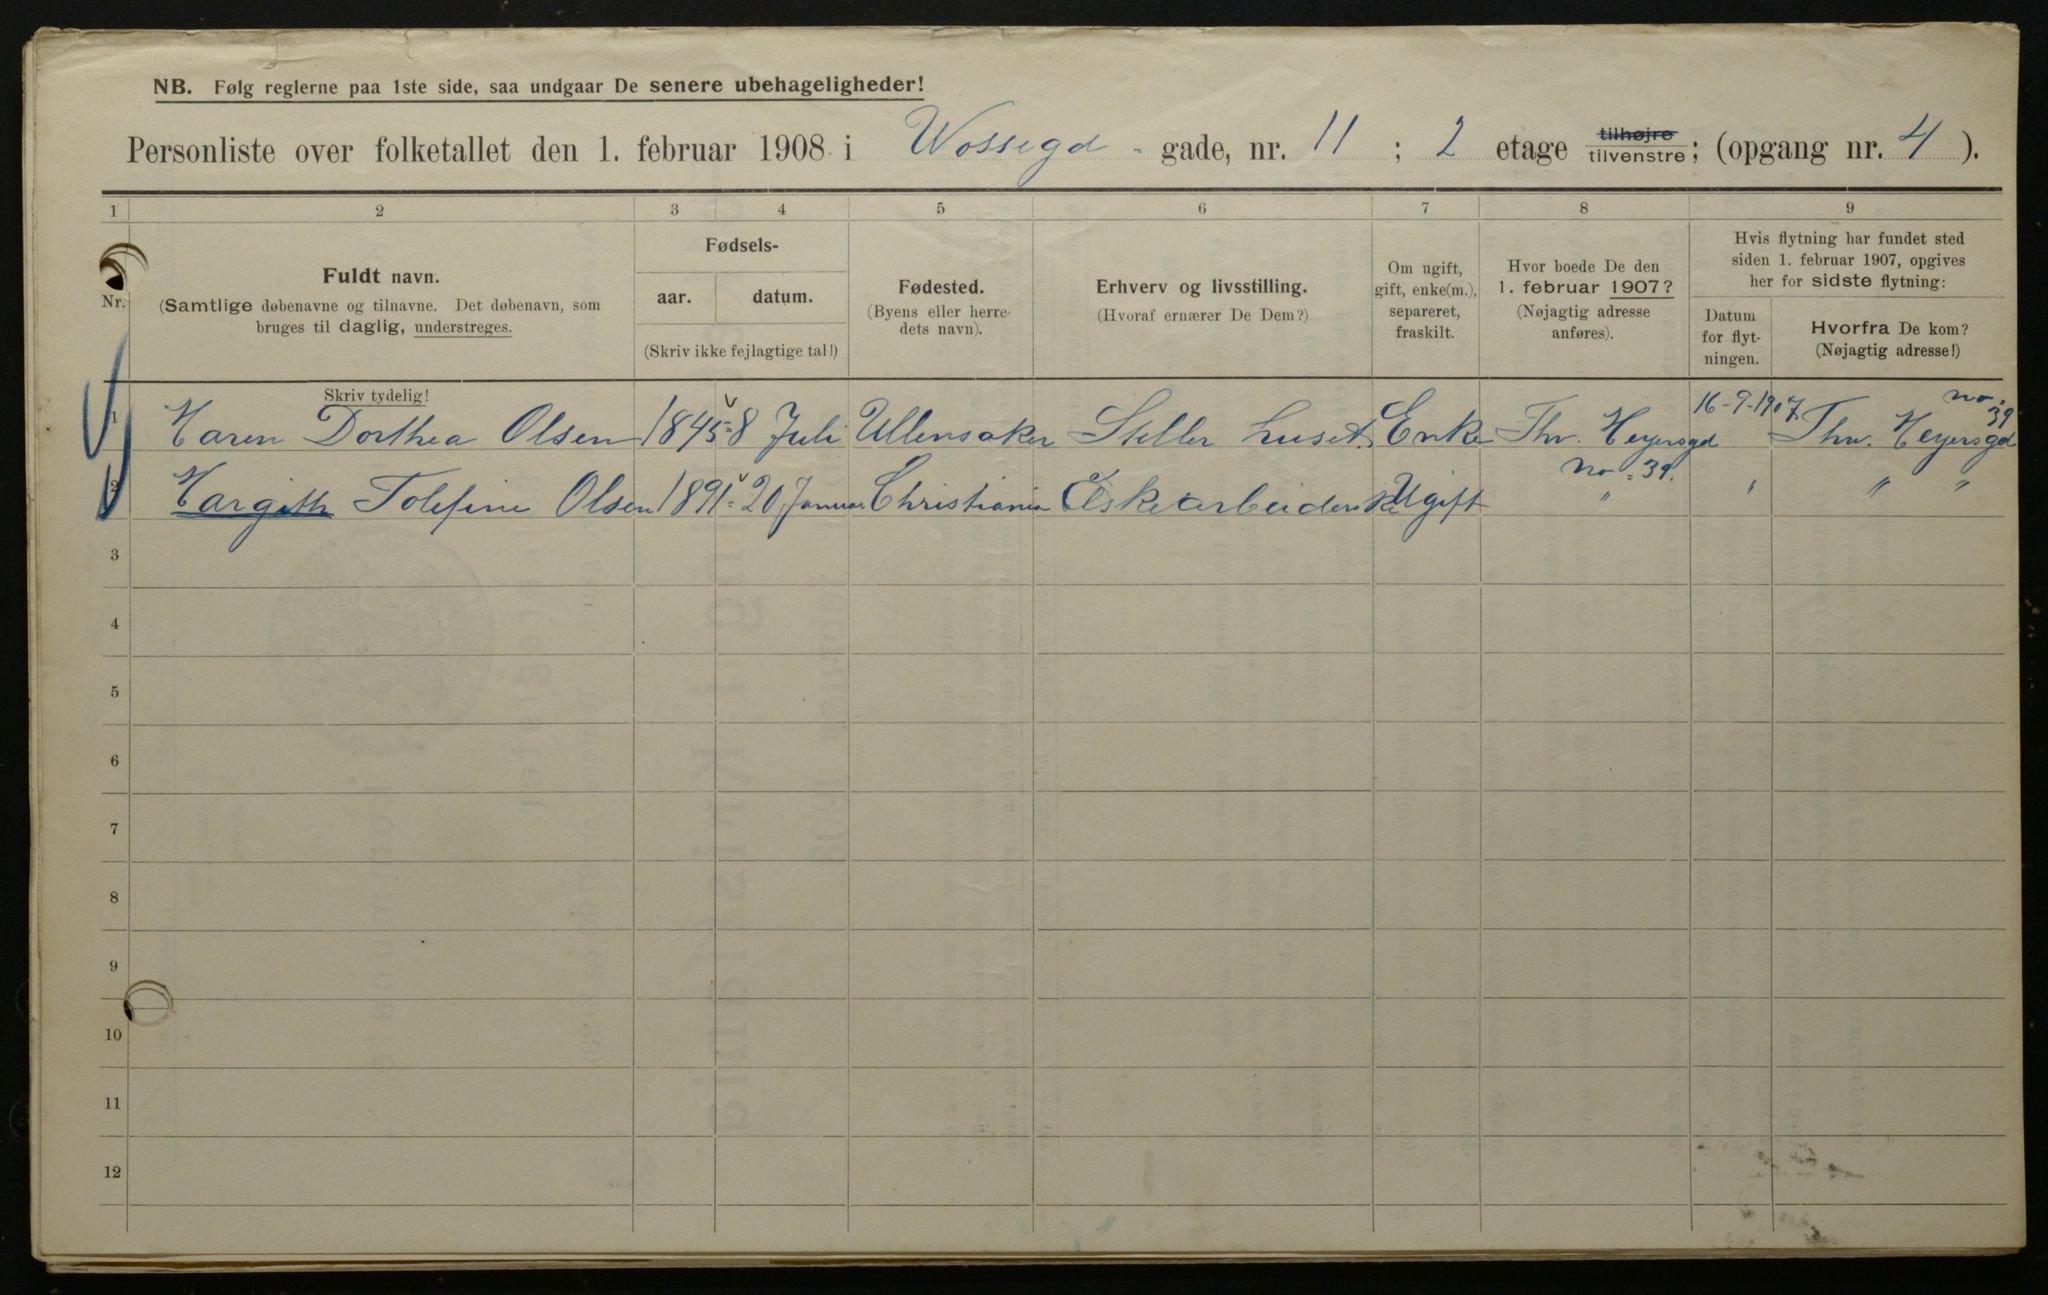 NB. Følg reglerne paa 1ste side, saa undgaar De senere ubehageligheder!
Personliste over folketallet den 1. februar 1908 i Wossegd - gade, nr. 11 ; 2 etage tilhøjre tilvenstre; (opgang nr. 4 ).
1 2 3 4 5 6 7 8 9
Nr.
Fuldt navn.
(Samtlige døbenavne og tilnavne. Det døbenavn, som
bruges til daglig, understreges.
Skriv tydelig!
Fødsels-
aar. datum.
(Skriv ikke fejlagtige tal!)
Fødested.
(Byens eller herre-
dets navn).
Erhverv og livsstilling.
(Hvoraf ernærer De Dem?)
Om ugift,
gift, enke(m.),
separeret,
fraskilt.
Hvor boede De den
1. februar 1907?
(Nøjagtig adresse
anføres).
Hvis flytning har fundet sted
siden 1. februar 1907, opgives
her for sidste flytning:
Datum
for flyt-
ningen.
Hvorfra De kom?
(Nøjagtig adresse!)
1 Karen Dorthea Olsen 1845 8 Juli Ullensaker Steller huset Enke Thv. Meyersgd no. 39. 16-9-1907. Thv. Meyersgd no. 39
2 Margith Olsen 1891 20 Januar Christiania Eskearbeiderske Ugift " " " "
3
4
5
6
7
8
9
10
11
12